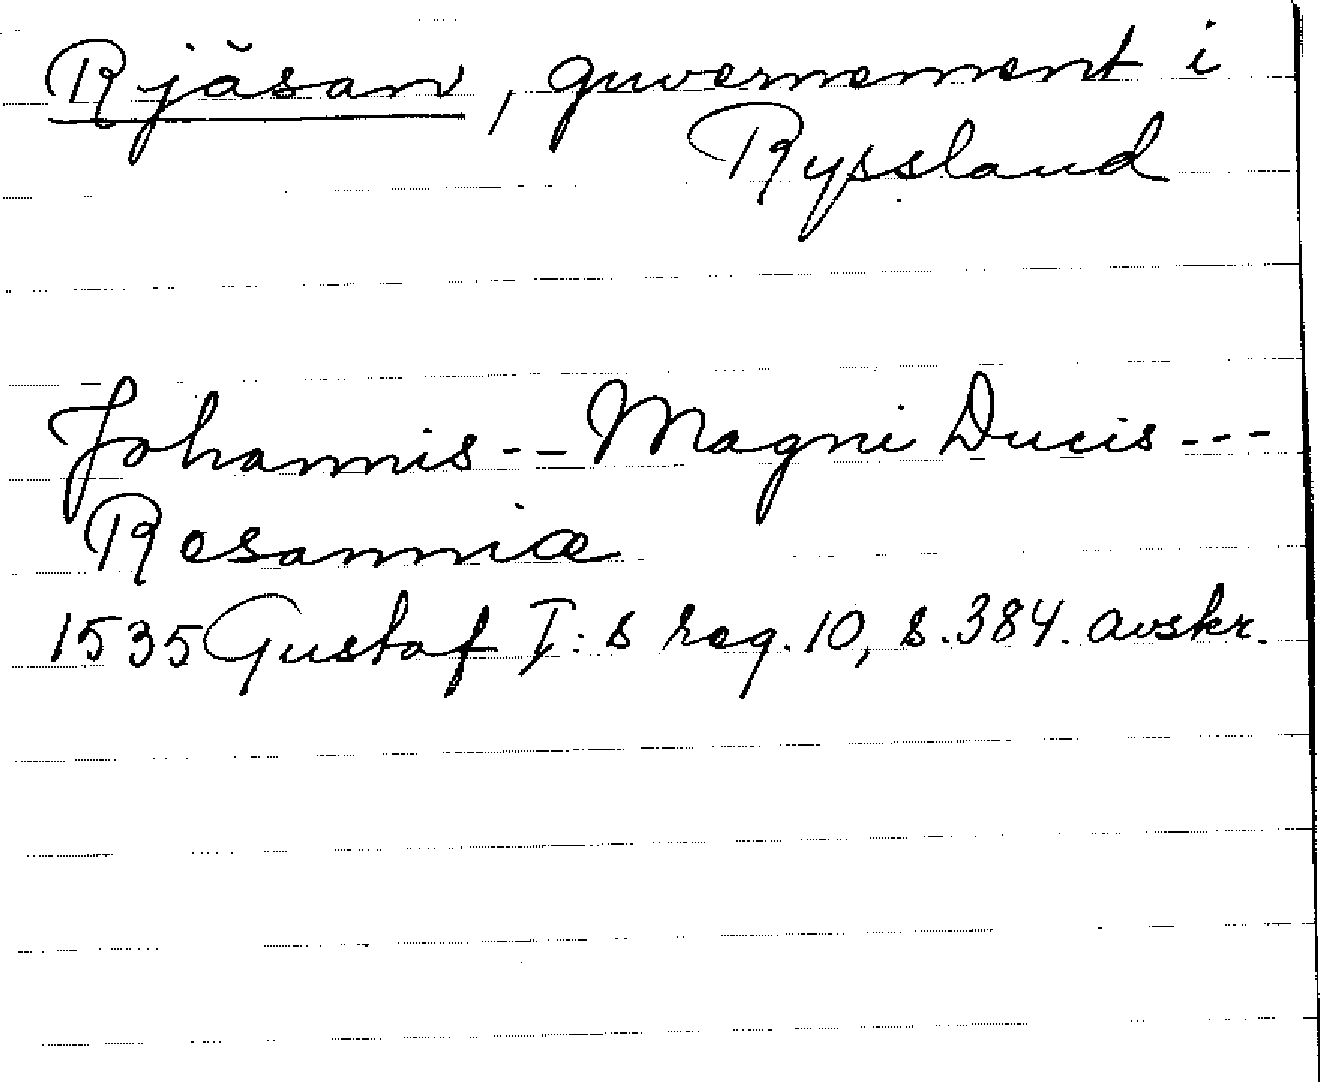 Rjăsan, guvernement i
Ryssland
Johannis -- Magni Ducis ---
Resanniæ
1535 Gustaf I:s reg. 10, s. 384. avskr.